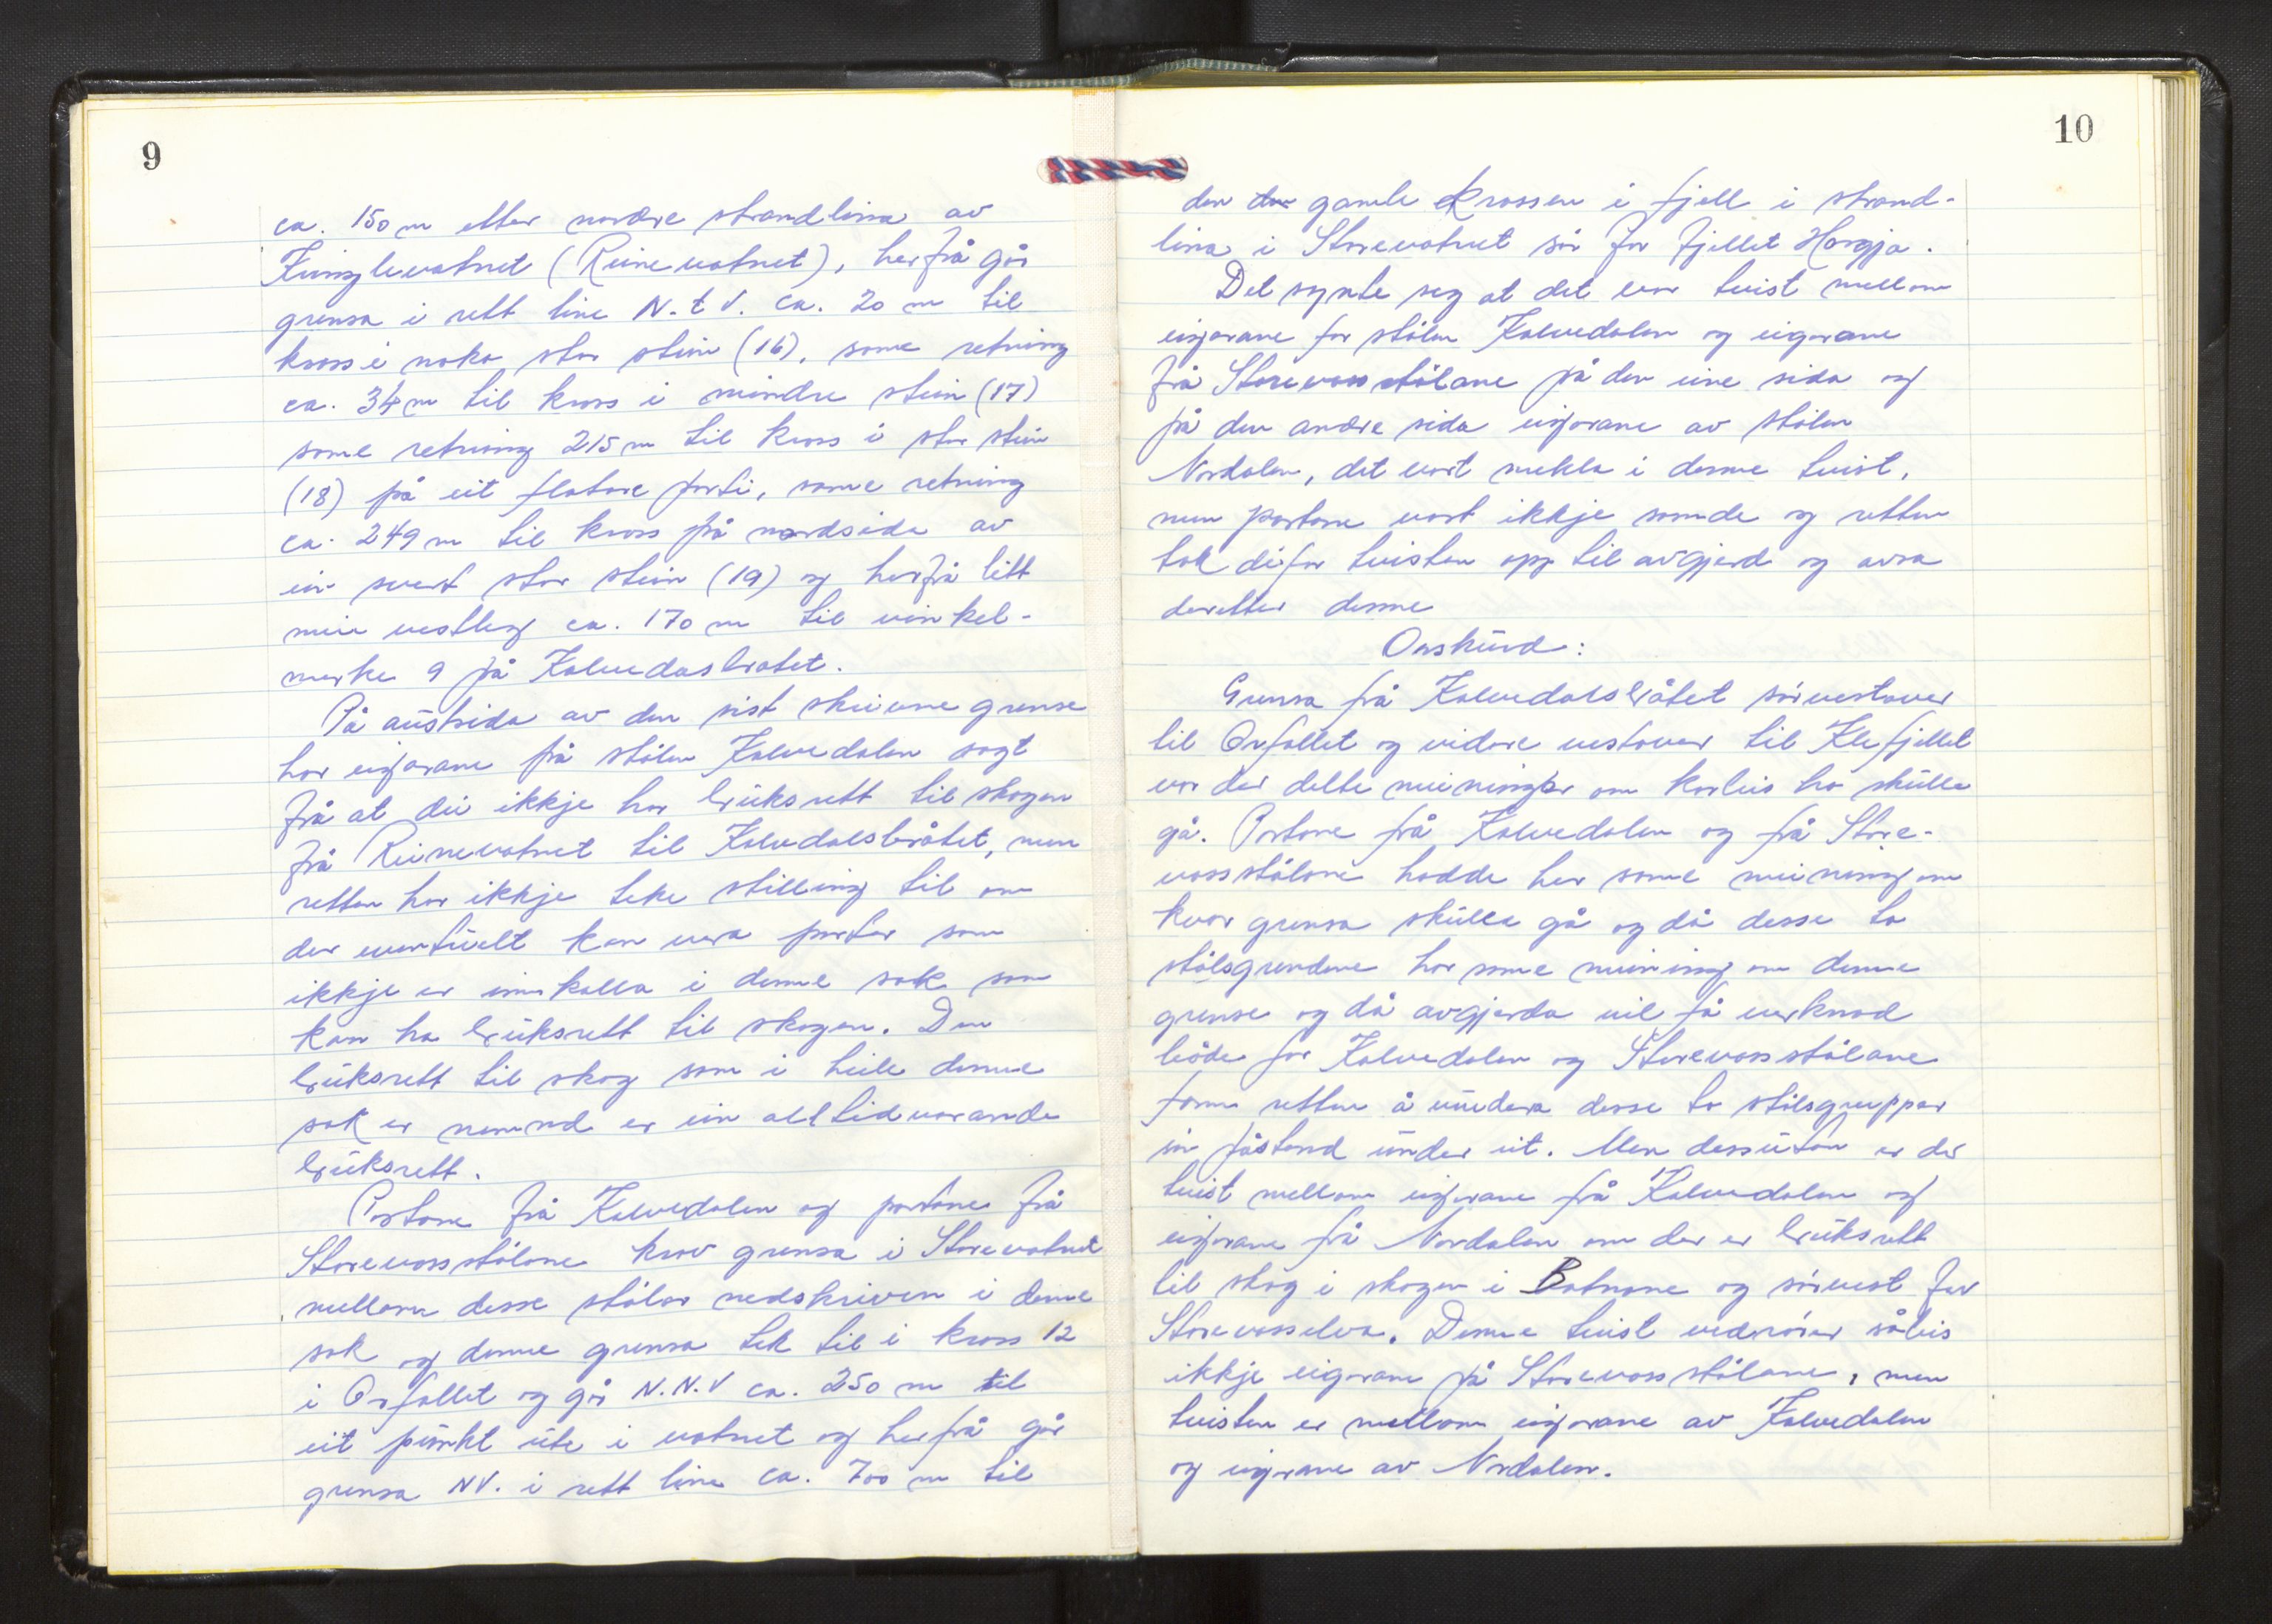 9
ca. 150 m etter nordre strandlina av
Kringlevatnet (Reinevatnet), herfrå går
grensa i rett line N.t.V. ca. 20 m til
kross i noko stor stein (16), same retning
ca. 34 m til kross i mindre stein (17)
same retning 215 m til kross i stor stein
(18) på eit flatare parti, same retning
ca. 249 m til kross på nordsida av
ein svert stor stein (19) og herfrå litt
meir vestleg ca. 170 m til vinkel-
merke 9 på Kalvedasbrotet.
På austsida av den sist skrivne grense
har eigarane frå stølen Kalvedalen sagt
frå at dei ikkje har bruksrett til skogen
frå Reinevatnet til Kalvdalsbråtet, men
retten har ikkje teke stilling til om
der eventuelt kan vera partar som
ikkje er innkalla i denne sak som
kan ha bruksrett til skogen. Den
bruksrett til skog som i heile denne
sak er nemnd er ein alltidvarande
bruksrett.
Partane frå Kalvedalen og partane frå
Storevasstølane krov grensa i Storevatnet
mellom desse stølar nedskriven i denne
sak og denne grensa tek til i kross 12
i Orfallet og går N.N.V ca. 250 m til
eit punkt ute i vatnet og herfrå går
grensa NV. i rett line ca. 700 m til
10
den den gamle krossen i fjell i strand-
lina i Storevatnet sør for fjellet Horgja.
Det synte seg at det var tvist mellom
eigarane for stølen Kalvedalen og eigarane
frå Storevasstølane på den eine sida og
på den andre sida eigarane av stølen
Nordalen, det vart mekla i denne tvist,
men partane vart ikkje samde og retten
tok difor tvisten opp til avgjerd og avsa
deretter denne
Orskurd:
Grensa frå Kalvedalsbråtet sørvestover
til Orfallet og vidare vestover til Klefjellet
var der delte meiningar om korleis ho skulle
gå. Partane frå Kalvedalen og frå Store-
vasstølane hadde her same meining om
kvar grensa skulle gå og då desse to
stølsgrendene har same meining om denne
grense og då avgjerda vil få verknad
både for Kalvedalen og Storevasstølane
fann retten å vurdera desse to stølsgruppar
sin påstand under eit. Men dessutan er der
tvist mellom eigarane frå Kalvedalen og
eigarane frå Nordalen om der er bruksrett
til skog i skogen i Botnane og sørvest for
Storevasselva. Denne tvist vedrører såleis
ikkje eigarane på Storevasstølane, men
tvisten er mellom eigarane av Kalvedalen
og eigarane av Nordalen.